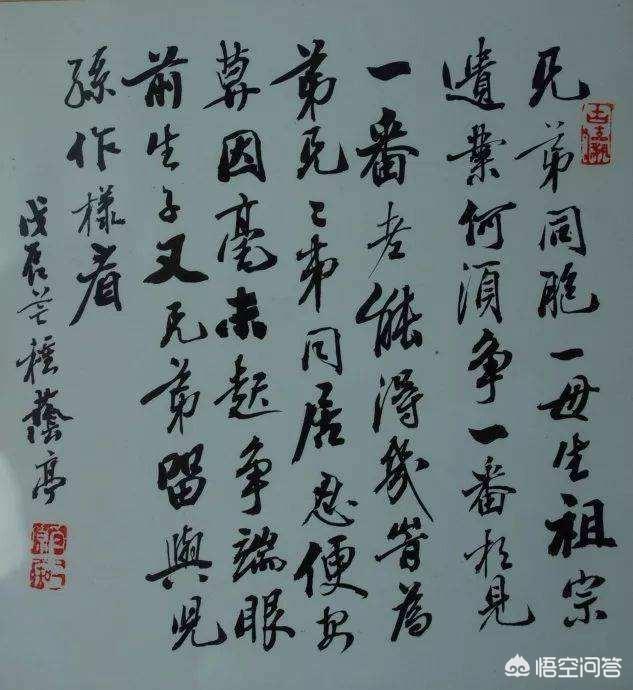 兄弟同胞一母生祖宗
遺業何須争一番相見
一番老能得幾旹為
弟兄〻弟同居忍便安
莫因毫末起争端眼
前生子又兄弟留與兒
孫作樣看
戊辰芒種藝亭
悟空问答